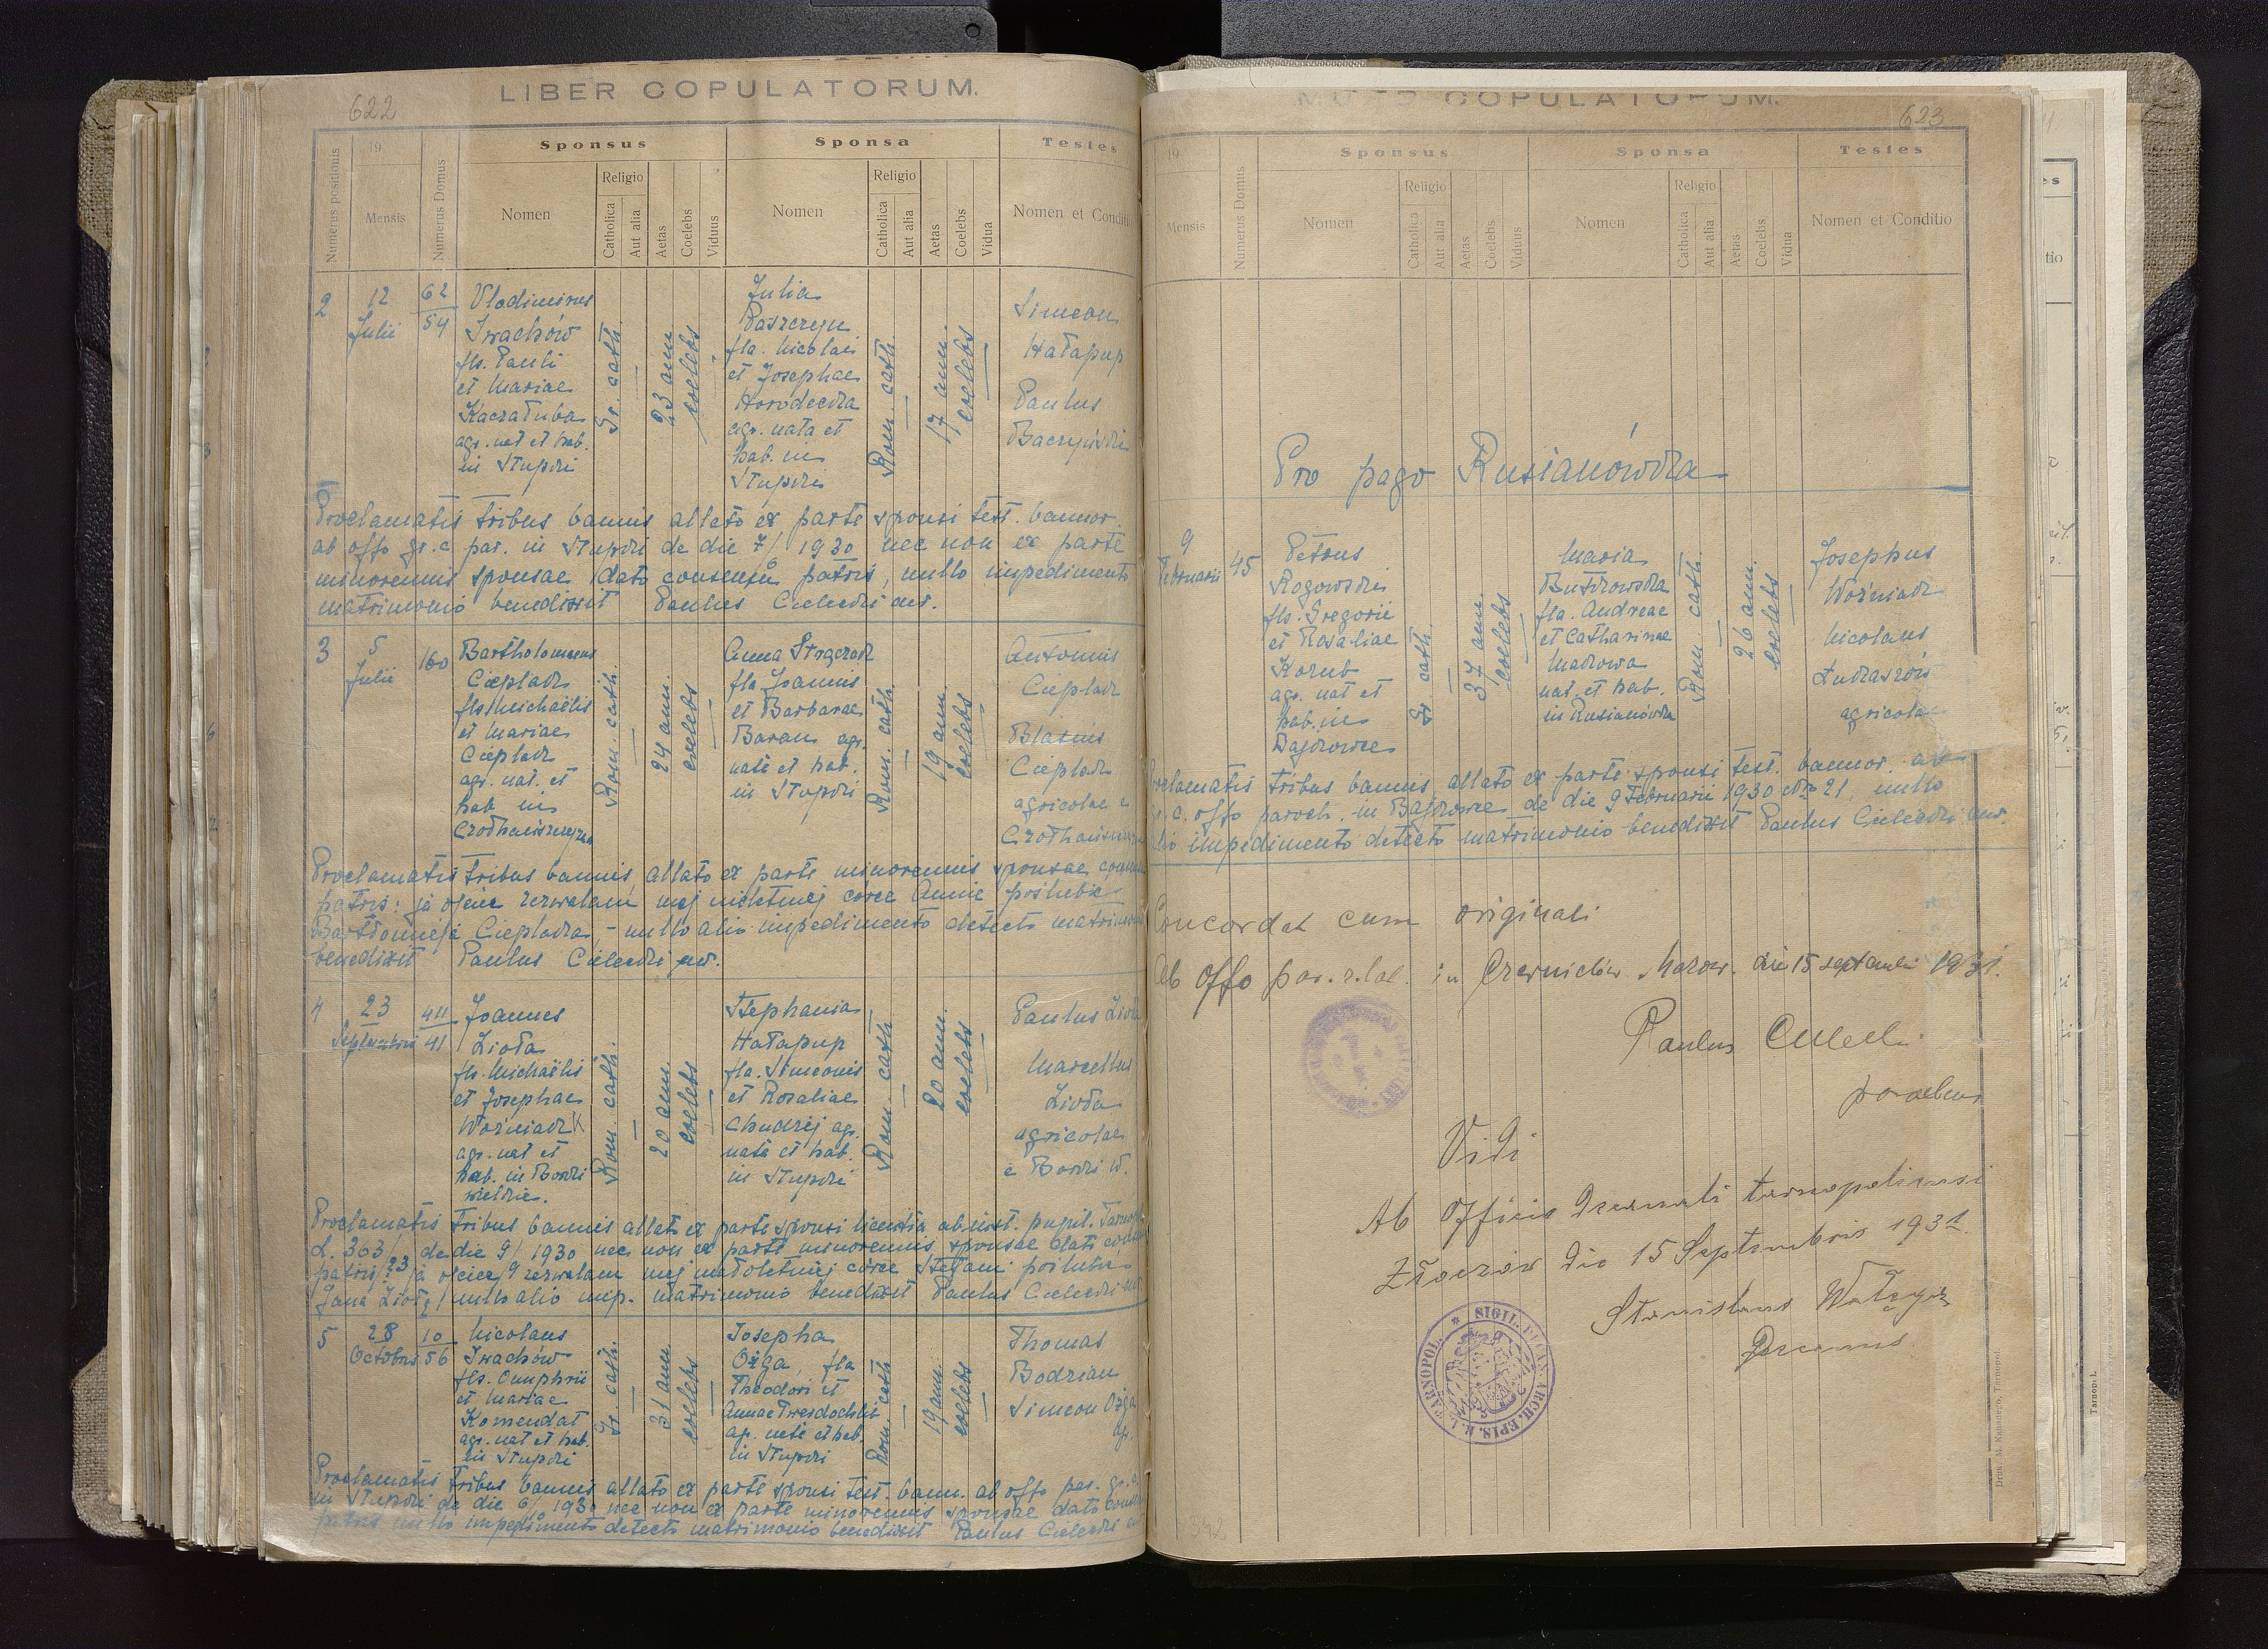 622
LIBER COPULATORUM.
Numerus positionis
19
Mensis
Numerus Domus
Sponsus
Nomen
Religio
Catholica
Aut alia
Aetas
Coelebs
Viduus
Sponsa
Nomen
Religio
Catholica
Aut alia
Aetas
Coelebs
Vidua
Testes
Nomen et Conditio
2
12
Julii
62
54
Vladimirus
Iwachów
fls. Pauli
et Mariae
Kaczałuba
agr. nat et hab.
in Stupki
Gr. cath.
23 ann.
coelebs
Julia
Paszczyn
fla. Nicolai
et Josephae
Horodecka
agr. nata et
hab. in
Stupki
Rom. cath.
17 ann.
coelebs
Simeon
Hałapup
Paulus
Baczyński
Proclamatis tribus bannis allato ex parte sponsi test. bannor.
ab offo gr. c. par. in Stupki de die 7/ 1930 nec non ex parte
minorennis sponsae dato consensu patris, nullo impedimento
matrimonio benedixit Paulus Cielecki
3
5
Julii
160
Bartholomaeus
Cieplak
fls. Michaëlis
et Mariae
Cieplak
agr. nat. et
hab. in
Rom. cath.
24 ann.
coelebs
Anna
fla. Joannis
et Barbarae
Baran agr.
nata et hab.
in Stupki
Rom. cath.
19 ann.
coelebs
Antonius
Cieplak
Blasius
Cieplak
agricolae e
Proclamatis tribus bannis, allato ex parte minorennis sponsae
patris: ja ojciec zezwalam mej nieletniej córce Annie poślubić
Bartłomieja Cieplaka, - nullo alio impedimento detecto
benedixit Paulus Cielecki
4
23
Septembris
411
41
Joannes
Zioła
fls. Michaëlis
et Josephae
Woźniak
agr. nat et
hab. in Borki
wielkie.
Rom. cath.
20 ann.
coelebs
Stephania
Hałapup
fla. Simeonis
et Rosaliae
Chudzij agr.
nata et hab.
in Stupki
Rom. cath
20 ann.
coelebs
Paulus Zioła
Marcellus
Zioła
agricolae
e Borki W.
Proclamatis tribus bannis allata ex parte sponsi licentia ab inst. pupil.
L. 363/23 de die 9/ 1930 nec non ex parte minorennis sponsae dato
patris: ja ojciec zezwalam mej małoletniej córce Stefani poślubić
Jana Ziołę / nullo alio imp. matrimonio benedixit Paulus Cielecki
5
28
Octobris
10
56
Nicolaus
Iwachów
fls. Onuphrii
et Mariae
Komendat
agr. nat et hab.
in Stupki
Gr. cath.
31 ann
coelebs
Josepha
Ożga, fla
Theodori et
Annae
agr. nata et hab.
in Stupki
Rom. cath
19 ann.
coelebs
Thomas
Bodzian
Simeon Ożga
ag.
Proclamatis tribus bannis allato ex parte sponsi test. bann. ab offo par. gr. c.
in Stupki de die 6/ 1930 nec non ex parte minorennis sponsae dato
patris nullo impedimento detecto matrimonio benedixit Paulus Cielecki
COPULATORUM.
623
19
Mensis
Numerus Domus
Sponsus
Nomen
Religio
Catholica
Aut alia
Aetas
Coelebs
Viduus
Sponsa
Nomen
Religio
Catholica
Aut alia
Aetas
Coelebs
Vidua
Testes
Nomen et Conditio
Pro pago Rusianówka
9
Februarii
45
Petrus
Rogowski
fls. Gregorii
et Rosaliae
Korub
agr. nat et
hab. in
Bajkowce
Gr. cath.
37 ann.
coelebs
Maria
Butkowska
fla. Andreae
et Catharinae
Makowa
nat. et hab.
in Rusianówka
Rom. cath.
26 ann.
coelebs
Josephus
Woźniak
Nicolaus
Łukaszów
agricolae
Proclamatis tribus bannis, allato ex parte sponsi test. bannor. ab
gr. c. offo paroch. in Bajkowce de die 9 Februarii 1930 No 21, nullo
alio impedimento detecto matrimonio benedixit Paulus Cielecki
Concordat cum originali
Ab offo par. r. lat. in Czernielów Mazow. die 15 septembris 1931.
Paulus Cielecki
parochus
Vidi
Ab Officio Decanali tarnopoliensi
Złoczów die 15 Septembris 1931
Stanislaus Wałęga
Decanus
SIGIL. DECAN. ARCH. EPIS. R. L. TARNOPOL.
Druk. M. Kahanego, Tarnopol.
Tarnopol.